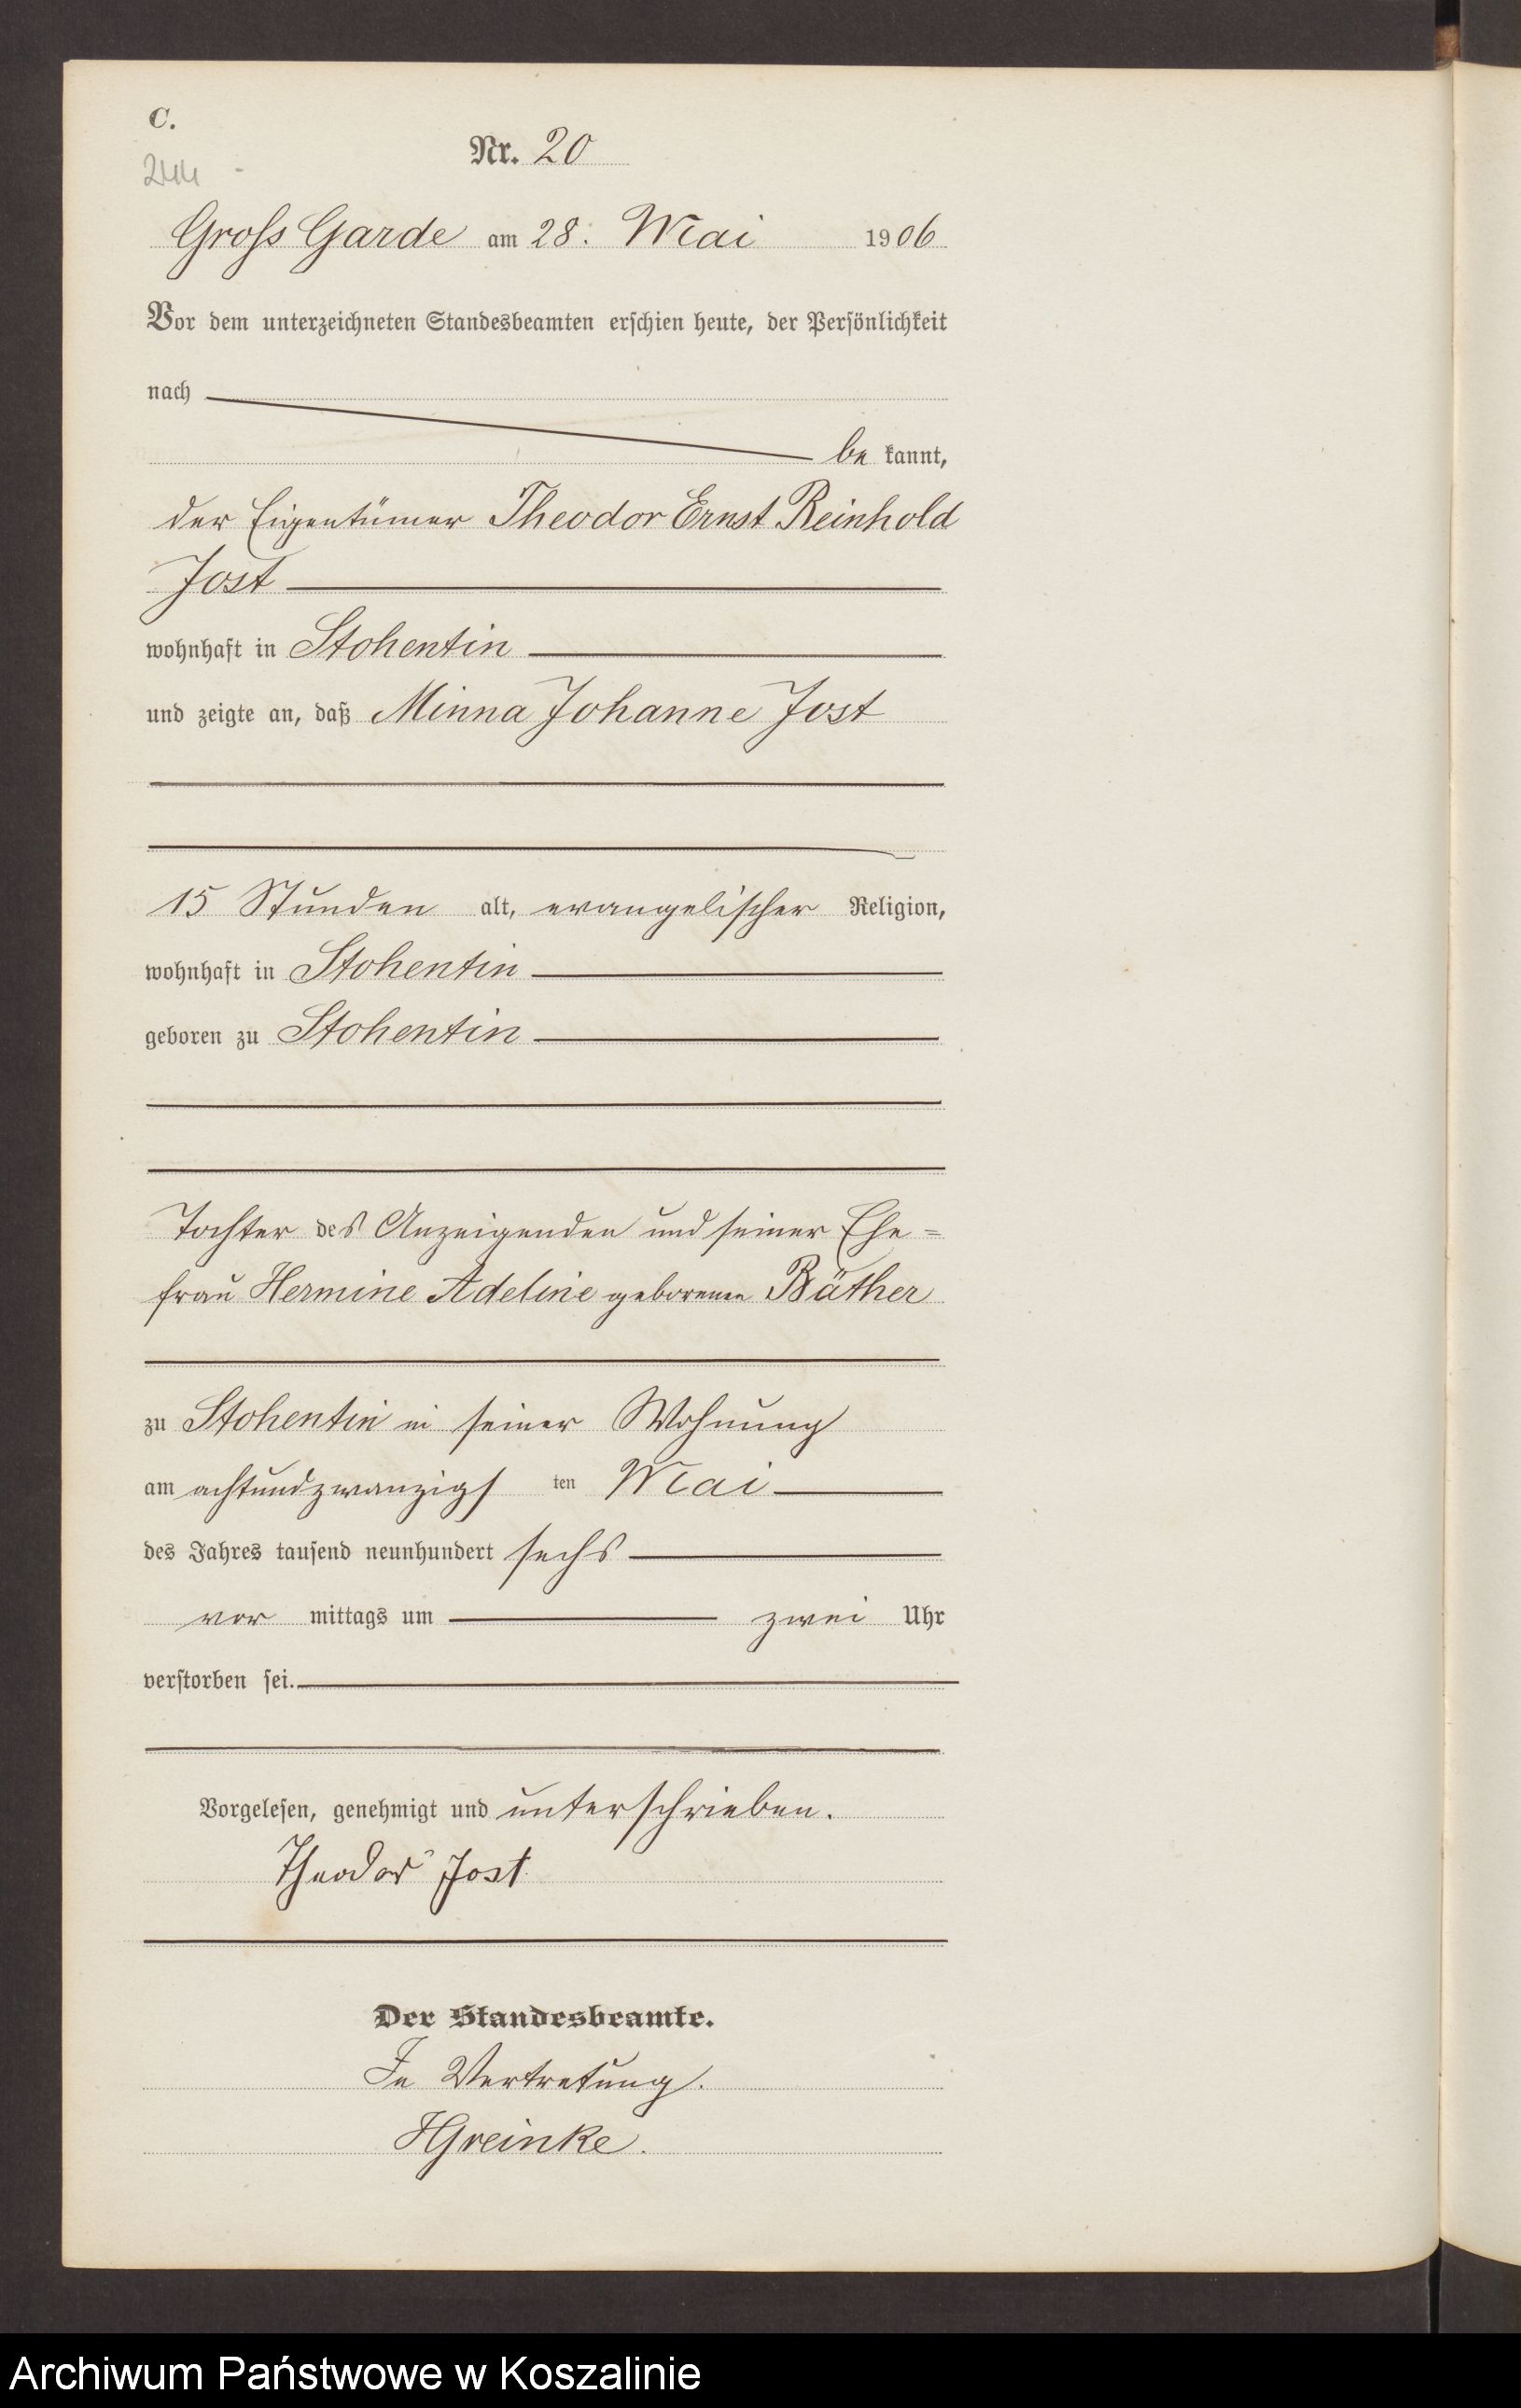 C.
244
Nr. 20
Gross Garde am 28. Mai 1906
Vor dem unterzeichneten Standesbeamten erschien heute, der Persönlichkeit
nach
be kannt,
der Eigentümer Theodor Ernst Reinhold
Jost
wohnhaft in Stohentin
und zeigte an, daß Minna Johanne Jost
15 Stunden alt, evangelischer Religion,
wohnhaft in Stohentin
geboren zu Stohentin
Tochter des Anzeigenden und seiner Ehe=
frau Hermine Adeline geborenen Bäther
zu Stohentin in seiner Wohnung
am achtundzwanzigsten Mai
des Jahres tausend neunhundert sechs
vor mittags um zwei Uhr
verstorben sei.
Vorgelesen, genehmigt und unterschrieben.
Theodor Jost
Der Standesbeamte.
In Vertretung.
HGreinke.
Archiwum Państwowe w Koszalinie